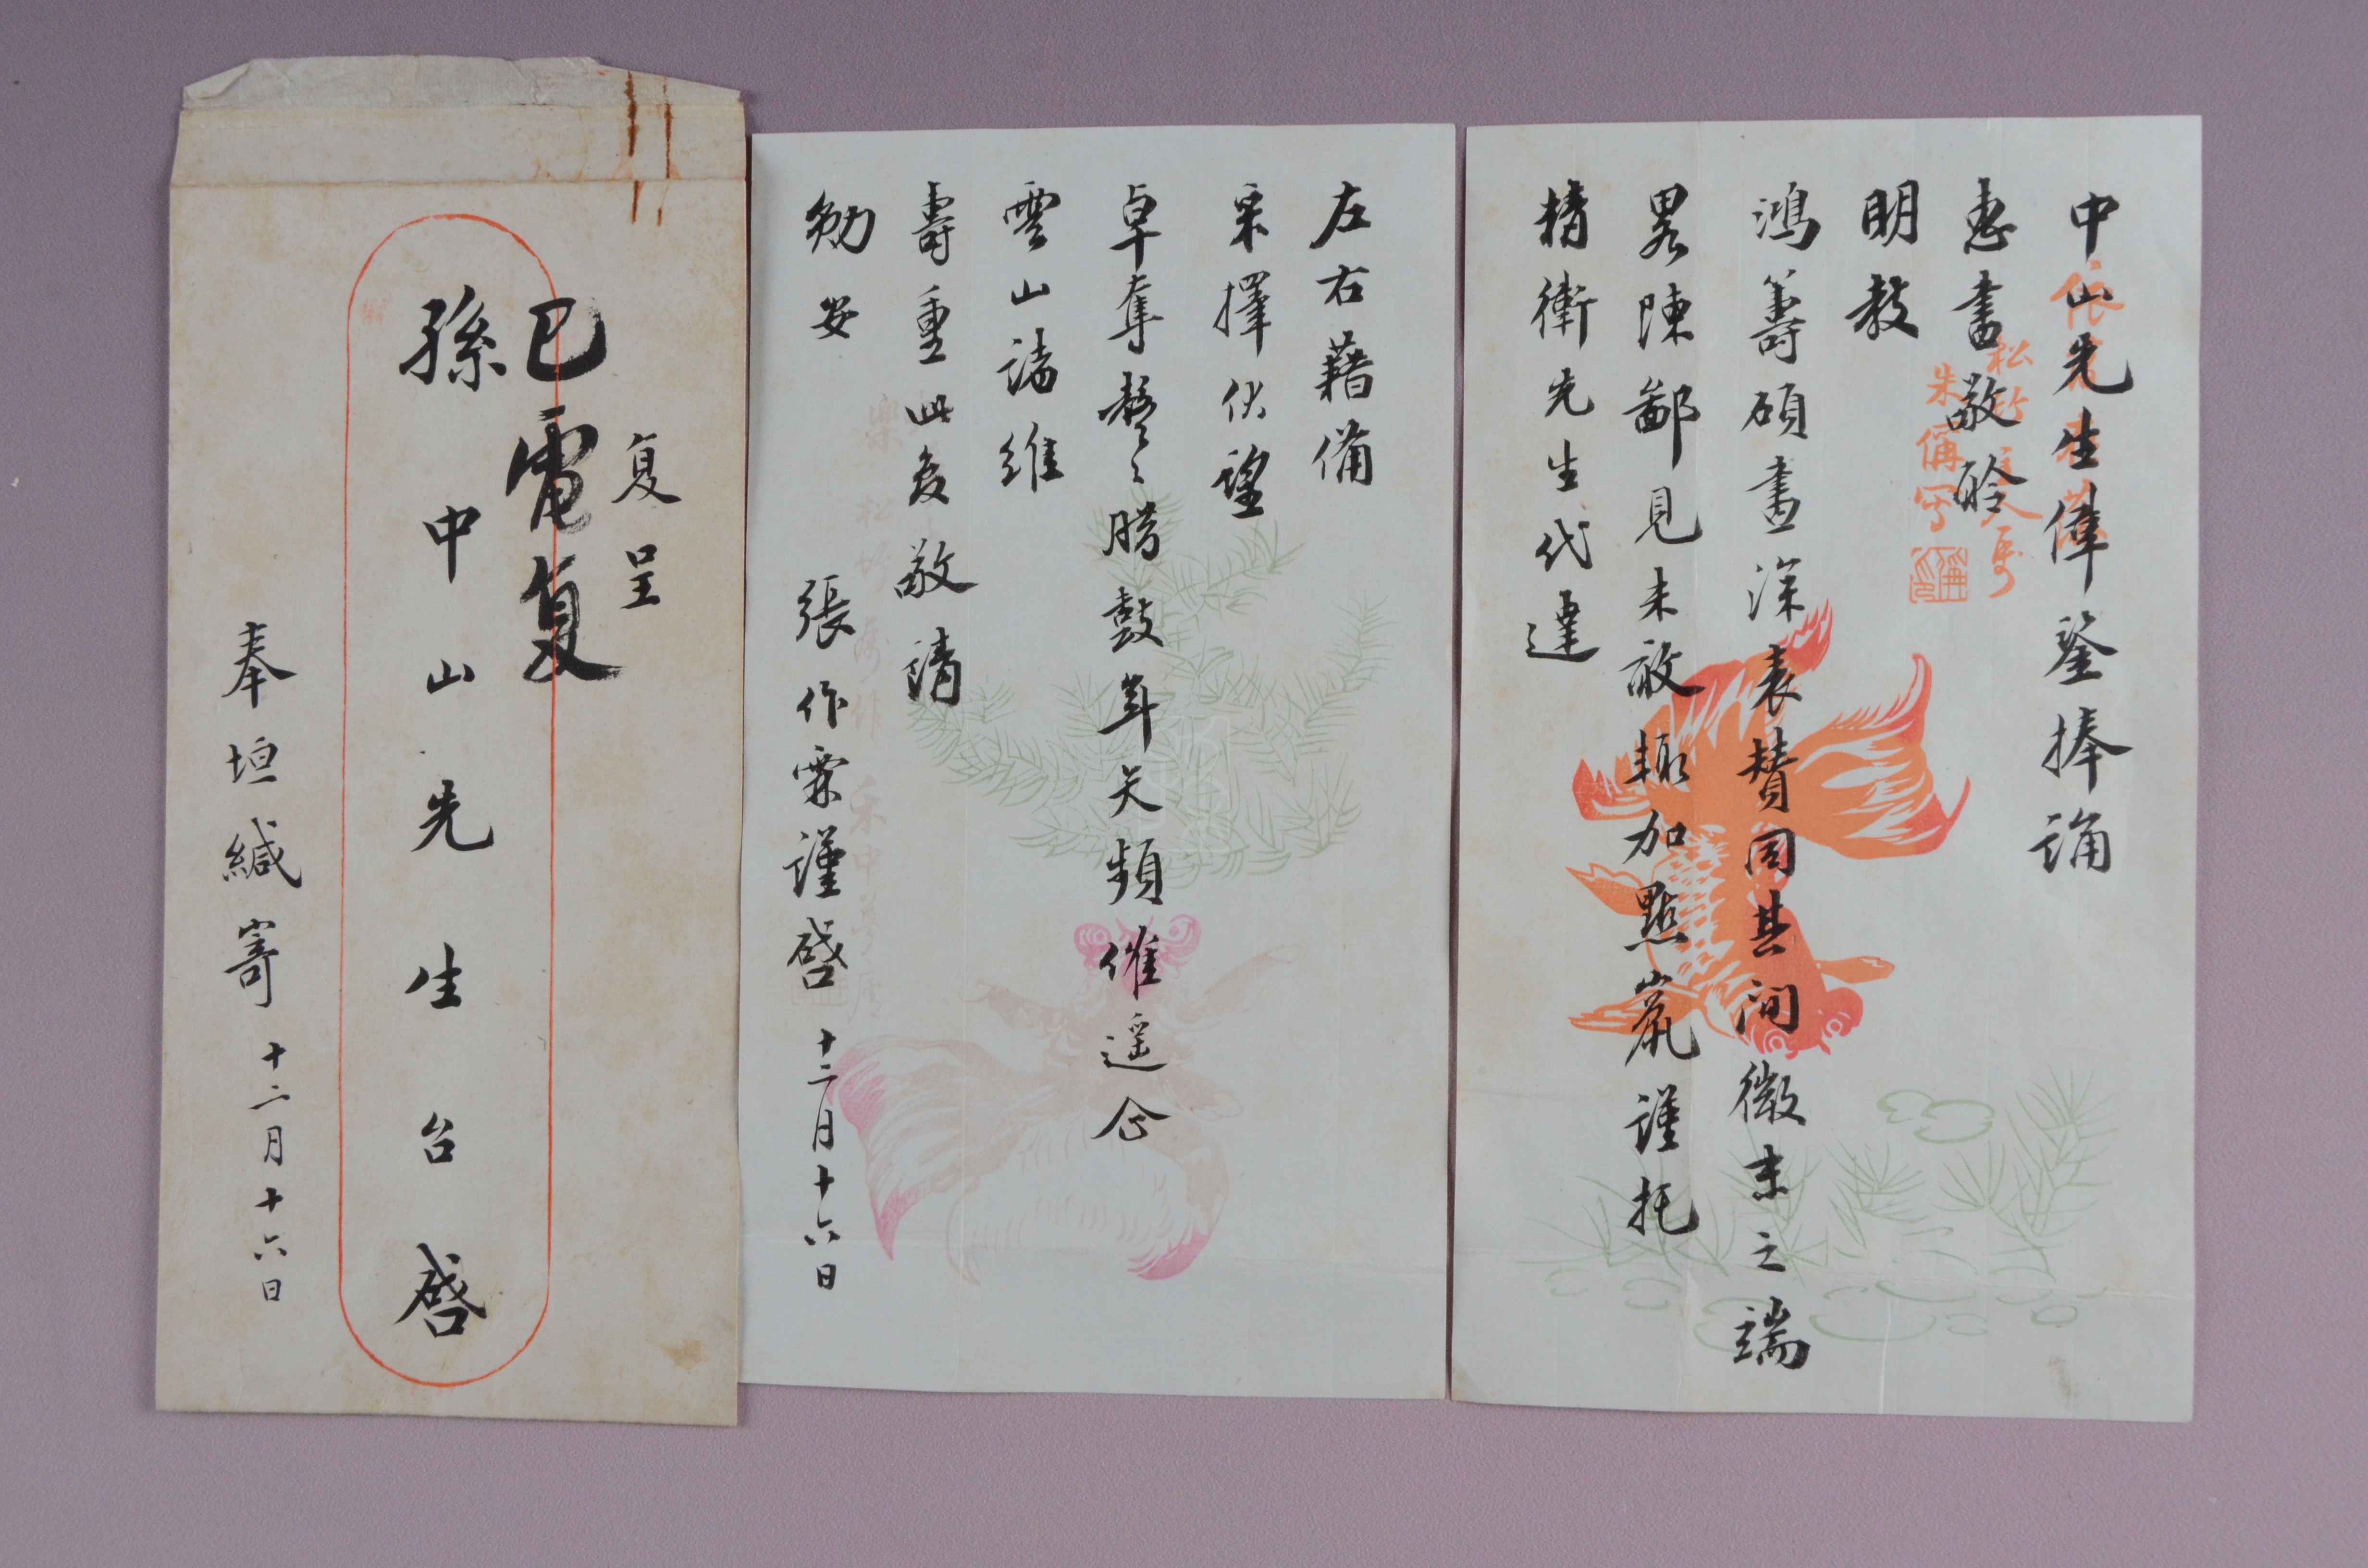 中山先生偉鑒捧誦
惠書敬聆
明教
鴻籌碩畫深表贊同其間微末之端
畧陳鄙見未敢輒加點竄謹托
精衛先生代達
左右藉備
采擇伏望
卓奪整之勝鼓年矢頻催遥念
雲山諸維
壽重此爰敬請
勋安
張作霖謹啓 十二月十六日
复呈
孫中山先生台啓
已電复
奉垣緘寄 十二月十六日